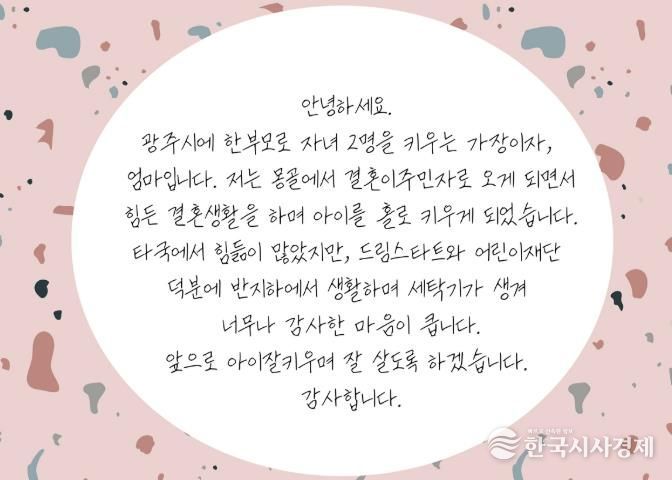 안녕하세요.
광주시에 한부모로 자녀 2명을 키우는 가장이자,
엄마입니다. 저는 몽골에서 결혼이주민자로 오게 되면서
힘든 결혼생활을 하며 아이를 홀로 키우게 되었습니다.
타국에서 힘듦이 많았지만, 드림스타트와 어린이재단
덕분에 반지하에서 생활하며 세탁기가 생겨
너무나 감사한 마음이 큽니다.
앞으로 아이잘키우며 잘 살도록 하겠습니다.
감사합니다.
한국시사경제